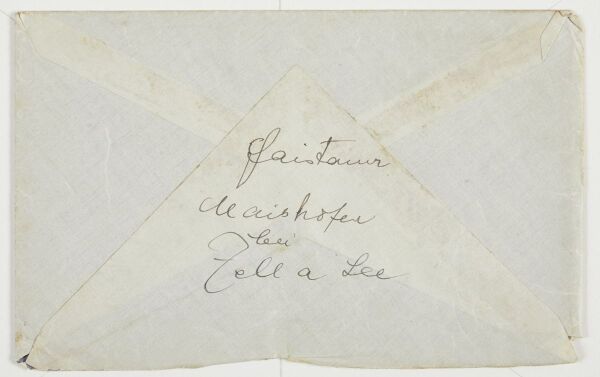 Faistauer
Maishofen
bei
Zell a See